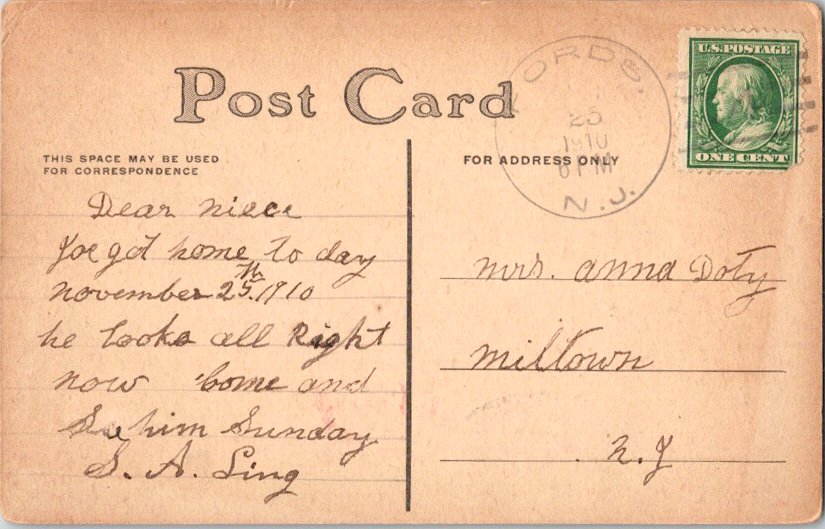 Post Card
THIS SPACE MAY BE USED
FOR CORRESPONDENCE
FOR ADDRESS ONLY
FORDS.
25
1910
6 PM
N.J.
U.S. POSTAGE
ONE CENT
Dear niece
Joe got home to day
november 25th. 1910
he looks all Right
now come and
See him Sunday
S. A. Ling
mrs. anna Doty
miltown
n. J